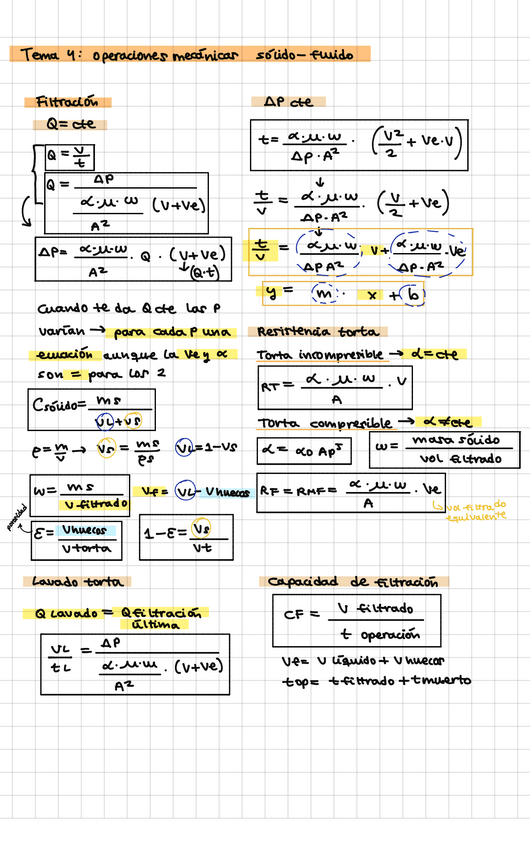 Tema 4: operaciones mecánicas sólido-fluido
Filtración
Q = cte
Q = V/t
Q = ΔP / (α·μ·w/A² (V+Ve))
ΔP = α·μ·w/A² · Q · (V+Ve)
(Q·t)
Cuando te da Q cte las P
varían → para cada P una
ecuación aunque la Ve y α
son = para los 2
Csólido = ms/(VL+Vs)
ρ = m/V → Vs = ms/ρs VL = 1-Vs
w = ms/V filtrado Vf = VL - Vhuecos
porosidad
ε = Vhuecos/Vtorta 1-ε = Vs/Vt
Lavado torta
Q Lavado = Q filtración
última
VL/tL = ΔP / (α·μ·w/A² · (V+Ve))
ΔP cte
t = α·μ·w/ΔP·A² · (V²/2 + Ve·V)
t/V = α·μ·w/ΔP·A² · (V/2 + Ve)
t/V = α·μ·w/ΔPA² V + α·μ·w/ΔP·A² · Ve
y = m · x + b
Resistencia torta
Torta incompresible → α = cte
RT = α·μ·w/A · V
Torta compresible → α ≠ cte
α = α0 ΔP^s w = masa sólido/vol filtrado
RF = RMF = α·μ·w/A · Ve
vol filtrado
equivalente
Capacidad de filtración
CF = V filtrado/t operación
Vf = V líquido + V huecos
top = t filtrado + t muerto